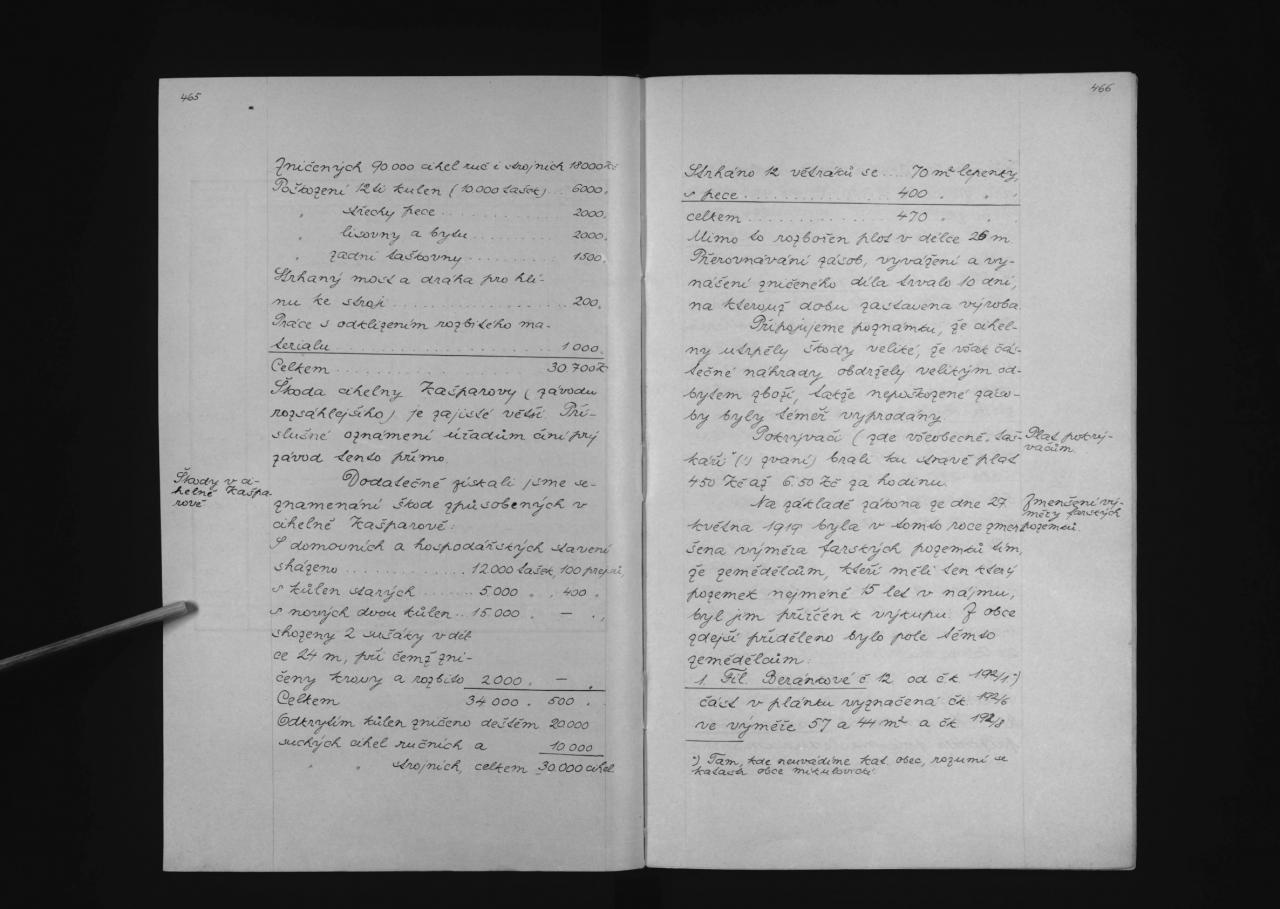 465
Zničených 90000 cihel ruč i strojních 18000 Kč
Poškození 12ti kůlen (10000 tašek) .. 6000.
" střechy pece .......... 2000.
" lisovny a bytu ........ 2000.
" zadní taškovny ........ 1500.
Strhaný most a dráha pro hlí-
nu ke stroji .......... 200.
Práce s odklizením rozbitého ma-
terialu .......... 1000.
Celkem .......... 30.700 Kč
Škoda cihelny Kašparovy (závodu
rozsáhlejšího) je zajisté větší. Pří-
slušné oznámení úřadům činí prý
závod tento přímo.
Škody v ci-
helně Kašpa-
rově
Dodatečně získali jsme se-
znamenání škod způsobených v
cihelně Kašparově:
S domovních a hospodářských stavení
sházeno .......... 12000 tašek, 100 prejzů,
s kůlen starých ....... 5.000 " , 400 "
s nových dvou kůlen .. 15.000 " — " ,
shozeny 2 sušáky v dél
ce 24 m, při čemž zni-
čeny krovy a rozbito 2000 . — .
Celkem 34000 . 500 .
Odkrytím kůlen zničeno deštěm 20000
suchých cihel ručních a 10.000
" " strojních, celkem 30.000 cihel
466
Strháno 12 větráků se .... 70 m² lepenky,
s pece .......... 400 " " .
celkem .......... 470 " .
Mimo to rozbořen plot v délce 26 m.
Přerovnávání zásob, vyvážení a vy-
nášení zničeného díla trvalo 10 dní,
na kterouž dobu zastavena výroba.
Připojujeme poznámku, že cihel-
ny utrpěly škody veliké, že však čás-
tečné náhrady obdržely velikým od-
bytem zboží, takže nepoškozené záso-
by byly téměř vyprodány.
Pokrývači (zde všeobecně „taš-
káři“ (!) zvaní) brali ku stravě plat
4.50 Kč až 6.50 Kč za hodinu.
Plat pokrý-
vačům.
Na základě zákona ze dne 27.
května 1919 byla v tomto roce zmen
šena výměra farských pozemků tím,
že zemědělcům, kteří měli ten který
pozemek nejméně 15 let v nájmu,
byl jim přiřčen k výkupu. Z obce
zdejší přiděleno bylo pole těmto
zemědělcům:
Zmenšení vý-
měry farských
pozemků.
1. Fil. Beránkové č 12 od čk 192/1 *)
část v plánku vyznačená čk 192/6
ve výměře 57 a 44 m² a čk 192/8
*) Tam, kde neuvádíme kat. obec, rozumí se
katastr obce mikulovické.